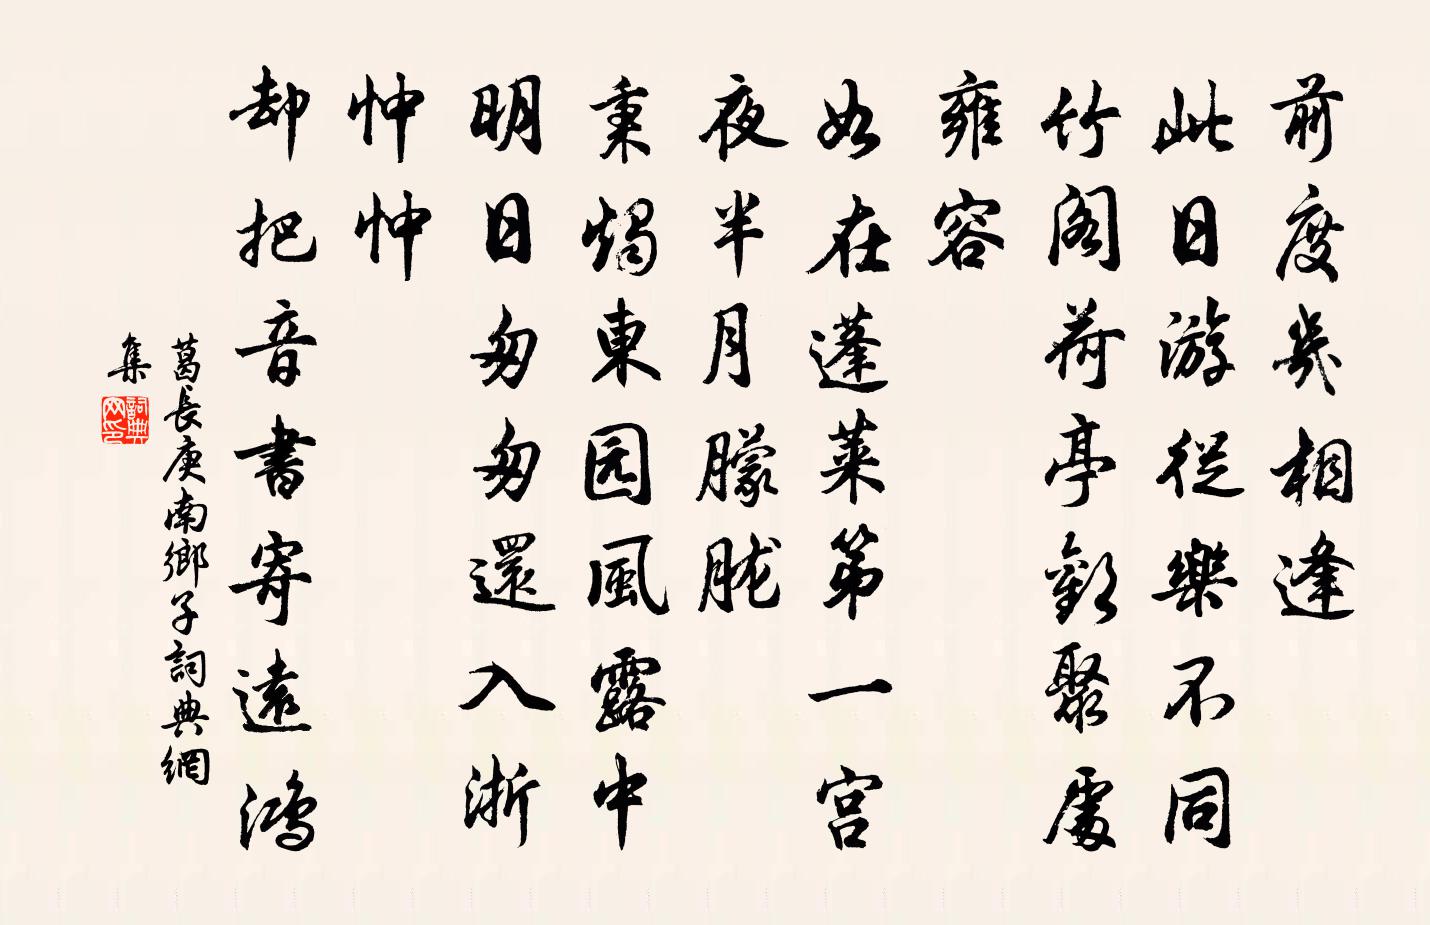 前度幾相逢
此日游從樂不同
竹阁荷亭歡聚處
雍容
如在蓬萊第一宮
夜半月朦朧
秉燭東园風露中
明日匆匆還入浙
忡忡
却把音書寄遠鴻
葛長庚南鄉子詞典網
集
詞典
网印